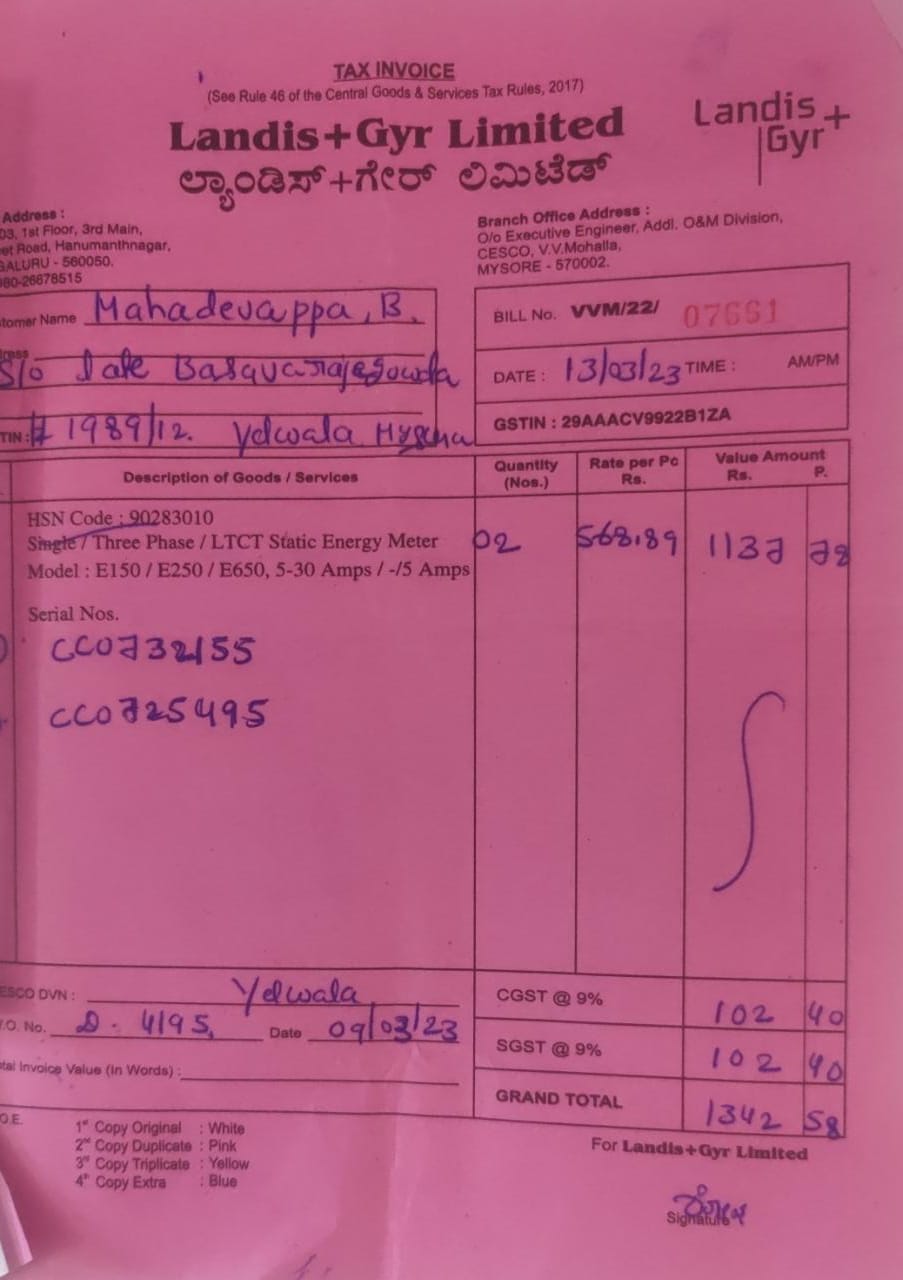 TAX INVOICE
(See Rule 46 of the Central Goods & Services Tax Rules, 2017)
Landis+Gyr Limited
ಲ್ಯಾಂಡಿಸ್+ಗೇರ್ ಲಿಮಿಟೆಡ್
Landis
Gyr+
Address :
03, 1st Floor, 3rd Main,
et Road, Hanumanthnagar,
GALURU - 560050.
080-26678515
Branch Office Address :
O/o Executive Engineer, Addl. O&M Division,
CESCO, V.V.Mohalla,
MYSORE - 570002.
tomer Name Mahadevappa, B.
ress
S/o late Basavarajegowda
TIN : # 1989/12. Yelwala
BILL No. VVM/22/ 07661
DATE : 13/03/23 TIME : AM/PM
GSTIN : 29AAACV9922B1ZA
Description of Goods / Services Quantity (Nos.) Rate per Pc Rs. Value Amount Rs. P.
HSN Code : 90283010
Single / Three Phase / LTCT Static Energy Meter 02 568.89 1137 78
Model : E150 / E250 / E650, 5-30 Amps / -/5 Amps
Serial Nos.
CC0732155
CC0725495
ESCO DVN : Yelwala
.O. No. D. 4195, Date 09/03/23
tal Invoice Value (In Words) :
CGST @ 9% 102 40
SGST @ 9% 102 40
GRAND TOTAL 1342 58
O.E.
1st Copy Original : White
2nd Copy Duplicate : Pink
3rd Copy Triplicate : Yellow
4th Copy Extra : Blue
For Landis+Gyr Limited
Signature